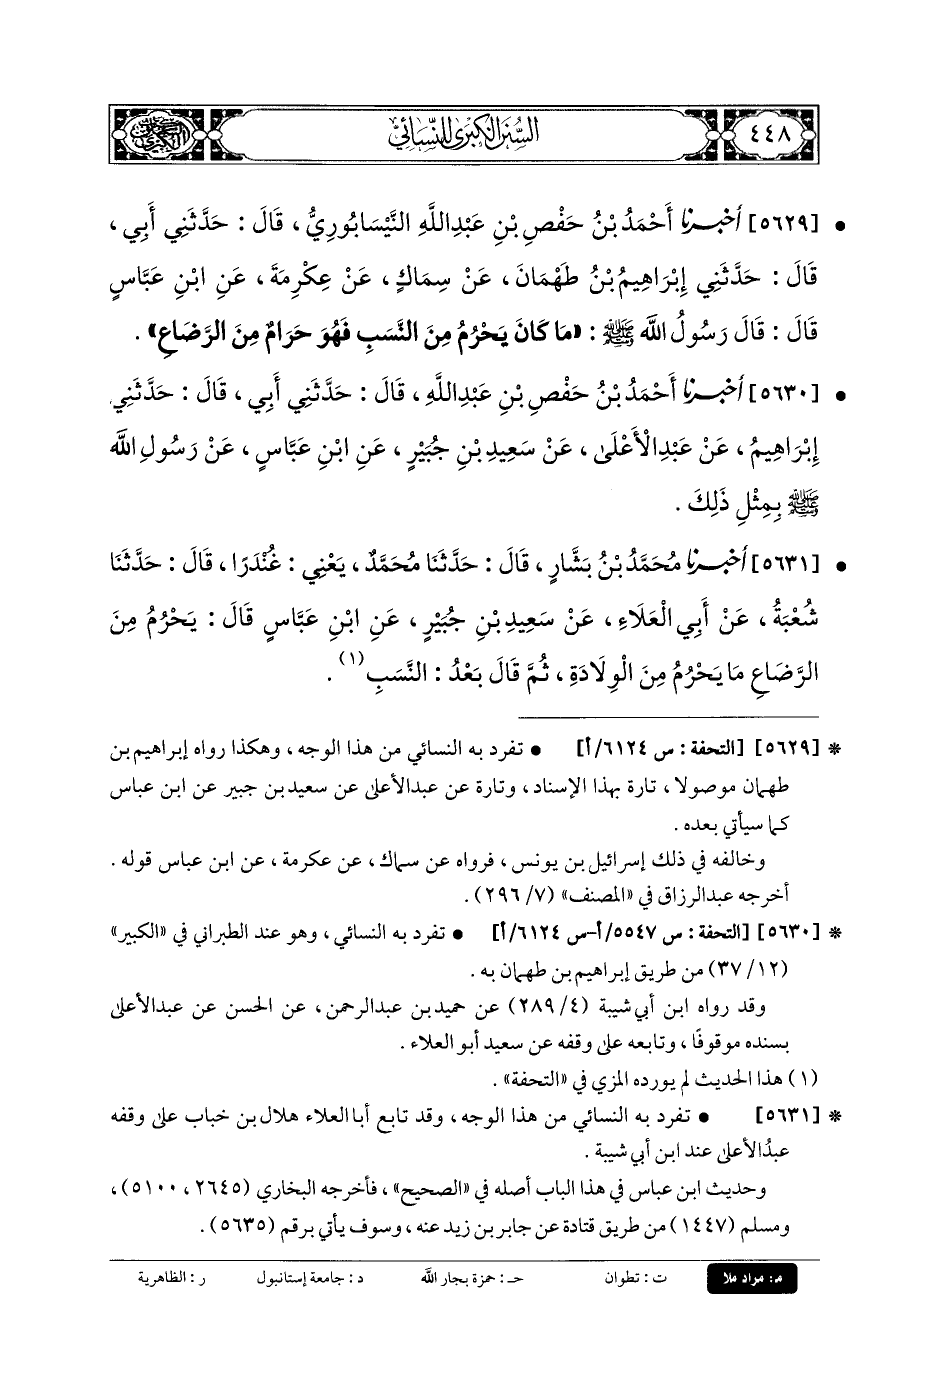 ٤٤٨
السنن الكبرى للنسائي
• [٥٦٢٩] أخبرنا أَحْمَدُ بْنُ حَفْصِ بْنِ عَبْدِاللَّهِ النَّيْسَابُورِيُّ ، قَالَ : حَدَّثَنِي أَبِي ،
قَالَ : حَدَّثَنِي إِبْرَاهِيمُ بْنُ طَهْمَانَ ، عَنْ سِمَاكٍ ، عَنْ عِكْرِمَةَ ، عَنِ ابْنِ عَبَّاسٍ
قَالَ : قَالَ رَسُولُ اللَّه ﷺ : «مَا كَانَ يَحْرُمُ مِنَ النَّسَبِ فَهُوَ حَرَامٌ مِنَ الرَّضَاعِ» .
• [٥٦٣٠] أخبرنا أَحْمَدُ بْنُ حَفْصِ بْنِ عَبْدِاللَّهِ ، قَالَ : حَدَّثَنِي أَبِي ، قَالَ : حَدَّثَنِي
إِبْرَاهِيمُ ، عَنْ عَبْدِ الْأَعْلَى ، عَنْ سَعِيدِ بْنِ جُبَيْرٍ ، عَنِ ابْنِ عَبَّاسٍ ، عَنْ رَسُولِ اللَّه
ﷺ بِمِثْلِ ذَلِكَ .
• [٥٦٣١] أخبرنا مُحَمَّدُ بْنُ بَشَّارٍ ، قَالَ : حَدَّثَنَا مُحَمَّدٌ ، يَعْنِي : غُنْدَرًا ، قَالَ : حَدَّثَنَا
شُعْبَةُ ، عَنْ أَبِي الْعَلَاءِ ، عَنْ سَعِيدِ بْنِ جُبَيْرٍ ، عَنِ ابْنِ عَبَّاسٍ قَالَ : يَحْرُمُ مِنَ
الرَّضَاعِ مَا يَحْرُمُ مِنَ الْوِلَادَةِ ، ثُمَّ قَالَ بَعْدُ : النَّسَبِ (١) .
* [٥٦٢٩] [التحفة : س ٦١٢٤/أ] • تفرد به النسائي من هذا الوجه ، وهكذا رواه إبراهيم بن
طهمان موصولا ، تارة بهذا الإسناد ، وتارة عن عبدالأعلى عن سعيد بن جبير عن ابن عباس
كما سيأتي بعده .
وخالفه في ذلك إسرائيل بن يونس ، فرواه عن سماك ، عن عكرمة ، عن ابن عباس قوله .
أخرجه عبدالرزاق في «المصنف» (٧/ ٢٩٦) .
* [٥٦٣٠] [التحفة : س ٥٥٤٧/أ-س ٦١٢٤/أ] • تفرد به النسائي ، وهو عند الطبراني في «الكبير»
(١٢/ ٣٧) من طريق إبراهيم بن طهمان به .
وقد رواه ابن أبي شيبة (٤/ ٢٨٩) عن حميد بن عبدالرحمن ، عن الحسن عن عبدالأعلى
بسنده موقوفًا ، وتابعه على وقفه عن سعيد أبو العلاء .
(١) هذا الحديث لم يورده المزي في «التحفة» .
* [٥٦٣١] • تفرد به النسائي من هذا الوجه ، وقد تابع أبا العلاء هلال بن خباب على وقفه
عبدُالأعلى عند ابن أبي شيبة .
وحديث ابن عباس في هذا الباب أصله في «الصحيح» ، فأخرجه البخاري (٢٦٤٥ ، ٥١٠٠) ،
ومسلم (١٤٤٧) من طريق قتادة عن جابر بن زيد عنه ، وسوف يأتي برقم (٥٦٣٥) .
م: مراد ملا ت : تطوان حـ : حمزة بجار اللَّه د : جامعة إستانبول ر : الظاهرية